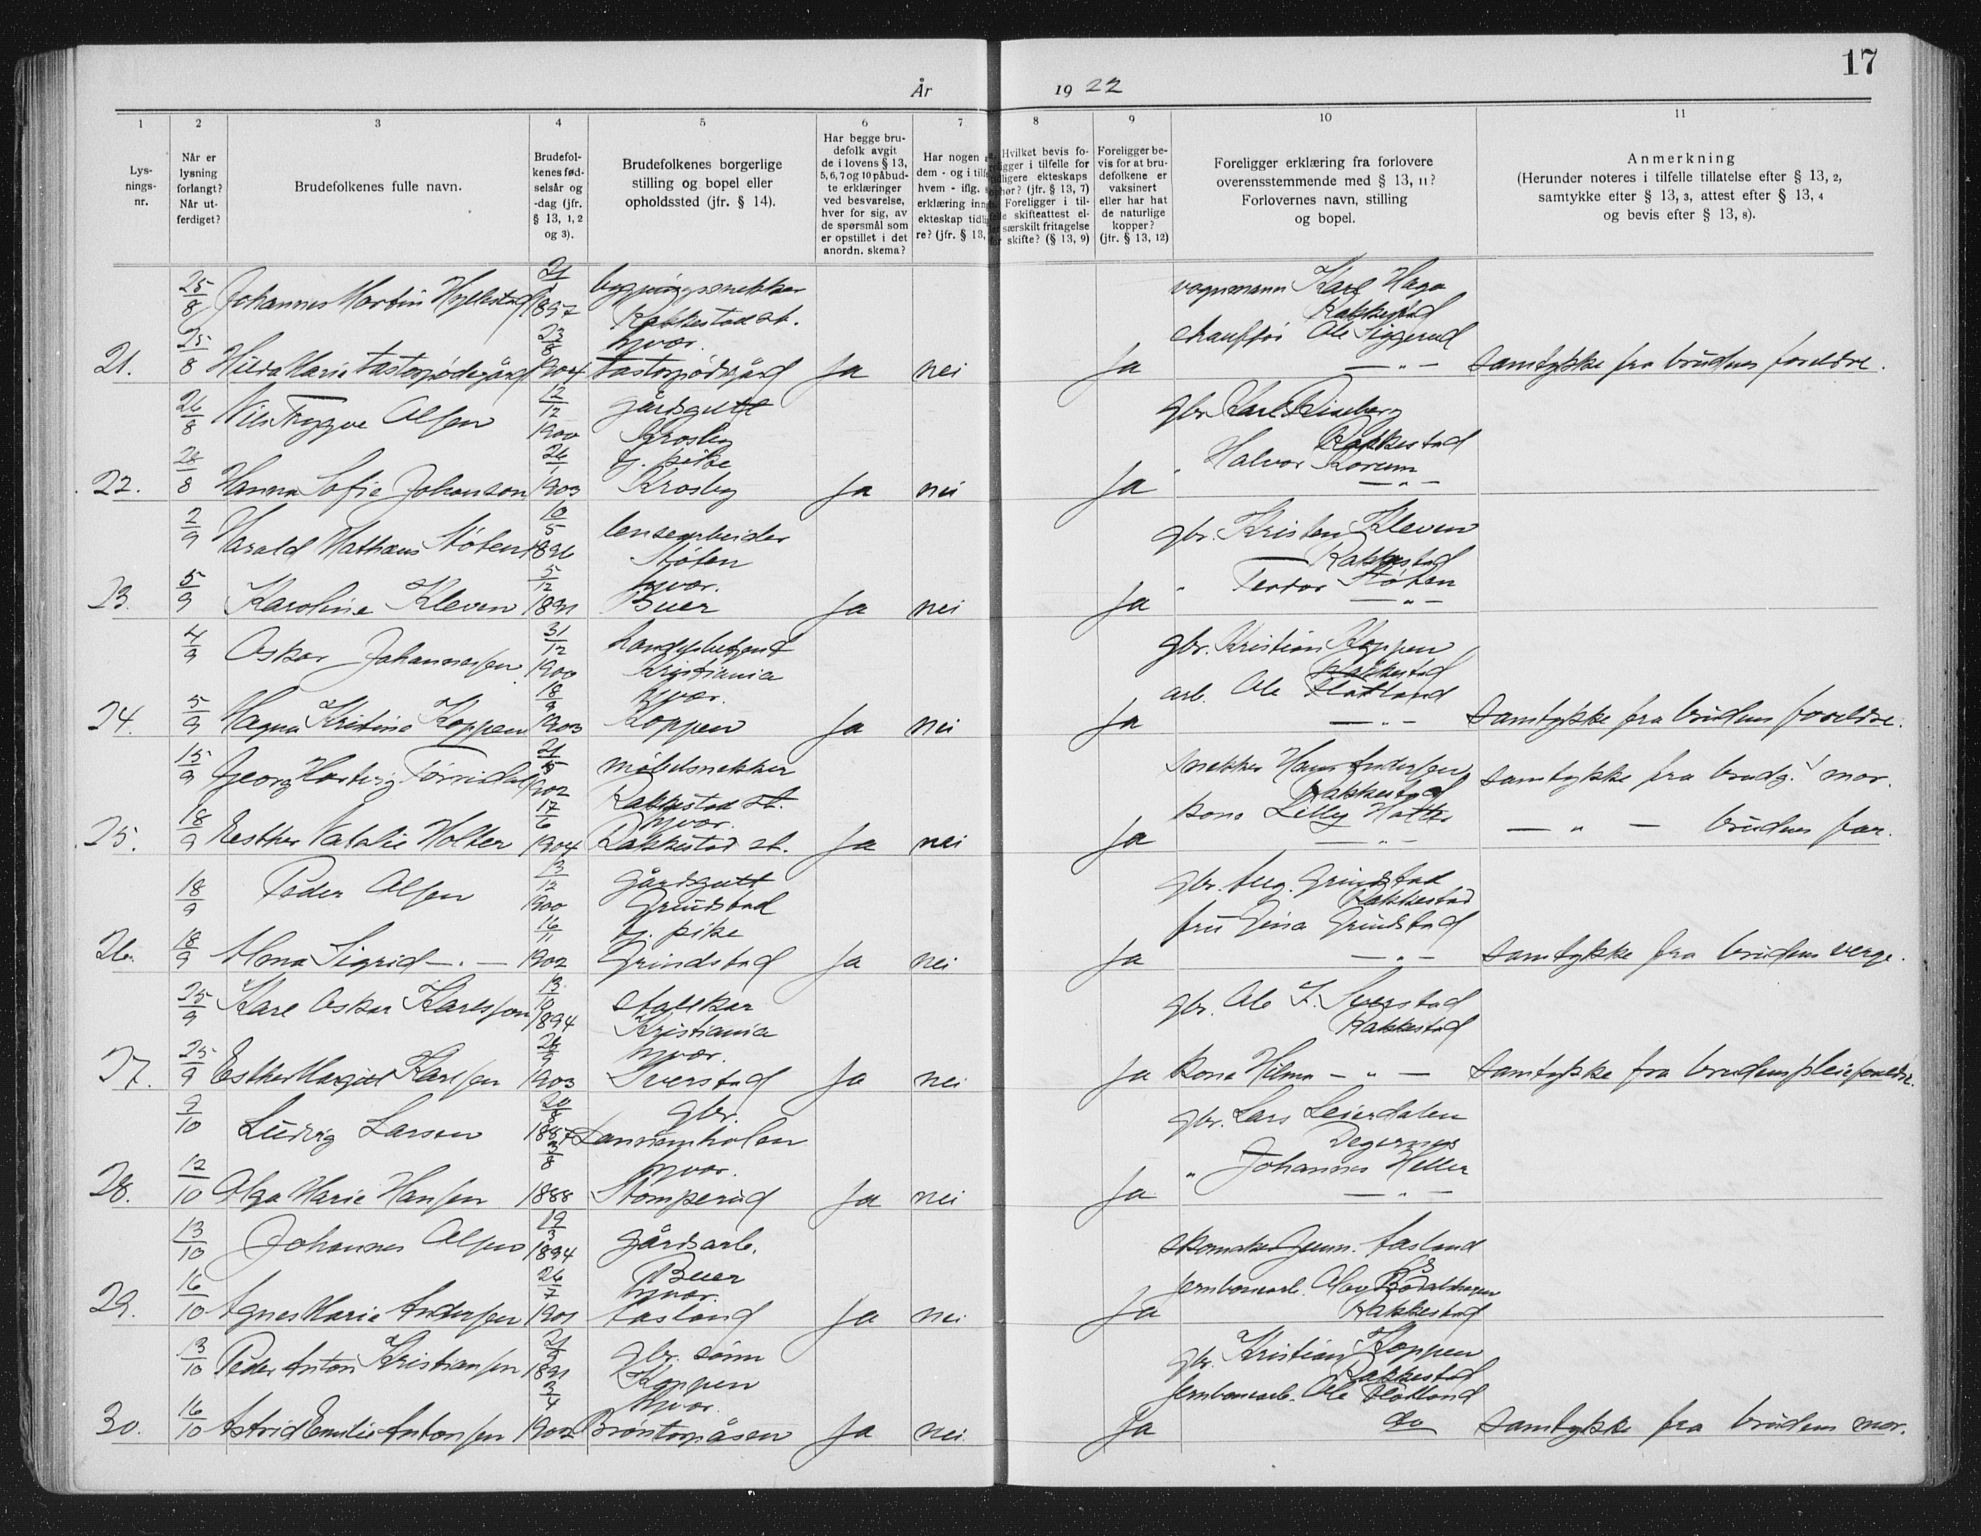 17
År 1922
1
2
3
4
5
6
7
8
9
10
11
Lys-
nings-
nr.
Når er
lysning
forlangt?
Når ut-
ferdiget?
Brudefolkenes fulle navn.
Brudefol-
kenes fød-
selsår og
-dag (jfr.
§ 13, 1, 2
og 3).
Brudefolkenes borgerlige
stilling og bopel eller
opholdssted (jfr. § 14).
Har begge bru-
defolk avgit
de i lovens § 13,
5, 6, 7 og 10 påbud-
te erklæringer
ved besvarelse,
hver for sig, av
de spørsmål som
er opstillet i det
anordn. skema?
Har nogen
dem - og i tilf
hvem - iflg.
erklæring inng
ekteskap tidlig
re? (jfr. § 13,
Hvilket bevis fo-
religger i tilfelle for
ekteskaps
(jfr. § 13, 7)
Foreligger i til-
skifteattest el-
særskilt fritagelse
skifte? (§ 13, 9)
Foreligger be-
vis for at bru-
defolkene er
vaksinert
eller har hat
de naturlige
kopper?
(jfr. § 13, 12)
Foreligger erklæring fra forlovere
overensstemmende med § 13, 11?
Forlovernes navn, stilling
og bopel.
Anmerkning
(Herunder noteres i tilfelle tillatelse efter § 13, 2,
samtykke efter § 13, 3, attest efter § 13, 4
og bevis efter § 13, 8).
25/8 Johannes Martin Hyllestad 1897 bygningssnekker vognmann Karl Haga
Rakkestad st. Rakkestad
25/8 23/8 hjvær. chauffør Ole Siggerud
21. Hilda Marie 1904 Ja nei Ja — " — Samtykke fra brudens foreldre.
26/8 Nils Trygve Olsen 12/12 1900 gårdsgutt gbr. Karl
Krosby Rakkestad
28/8 26/1 tj. pike " Halvor Korum
22. Hanna Sofie Johanson 1903 Krosby Ja nei Ja — " —
2/9 Harald Mathæus Støten 10/5 1896 lensearbeider gbr. Kristen Kleven
Støten Rakkestad
5/9 5/12 hjvær. " Teodor Støten
23. Karoline Kleven 1891 Buer Ja nei Ja — " —
4/9 Oskar Johannessen 31/12 1900 handelsbetjent gbr. Kristian Koppen
Kristiania Rakkestad
5/9 18/9 hjvær. arb. Ole Flatland
24. Magna Kristine Koppen 1903 Koppen Ja nei Ja — " — Samtykke fra brudens foreldre.
15/9 Georg Hartvig 1902 møbelsnekker snekker Hans Andersen Samtykke fra brudg.s mor.
Rakkestad st. Rakkestad
18/9 17/6 hjvær. kone Lilly
25. Esther Natalie Holter 1904 Rakkestad st. Ja nei Ja — " — — " — brudens far.
18/9 Peder Olsen 13/12 1900 gårdsgutt gbr. Aug. Grindstad
Grindstad Rakkestad
18/9 16/11 tj. pike fru Gina Grindstad
26. Mona Sigrid — " — 1902 Grindstad Ja nei Ja — " — Samtykke fra brudens verge.
25/9 Karl Oskar Karlsson 13/10 1894 stallkar gbr. Ole I. Sverstad
Kristiania Rakkestad
25/9 26/9 hjvær.
27. Esther Margit Karlsen 1903 Sverstad Ja nei Ja kone Hilma — " — Samtykke fra brudens pleieforeldre.
9/10 Ludvig Larsen 20/8 1857 gbr. gbr. Lars Leierdalen
Degernes
12/10 3/8 hjvær. " Johannes Heller
28. Olga Marie Hansen 1888 Stomperud Ja nei Ja — " —
13/10 Johannes Olsen 19/3 1894 gårdsarb. skomaker Gunn. Aasland
Buer
16/10 26/7 hjvær. jernbanearb. Olav
29. Agnes Marie Andersen 1901 Aasland Ja nei Ja Rakkestad
13/10 Peder Anton Kristiansen 1891 gbr. sønn gbr. Kristian Koppen
Koppen Rakkestad
16/10 3/4 hjvær. jernbanearb. Ole Flatland
30. Astrid Emilie Antonsen 1902 Brøntorpåsen Ja nei Ja do Samtykke fra brudens mor.